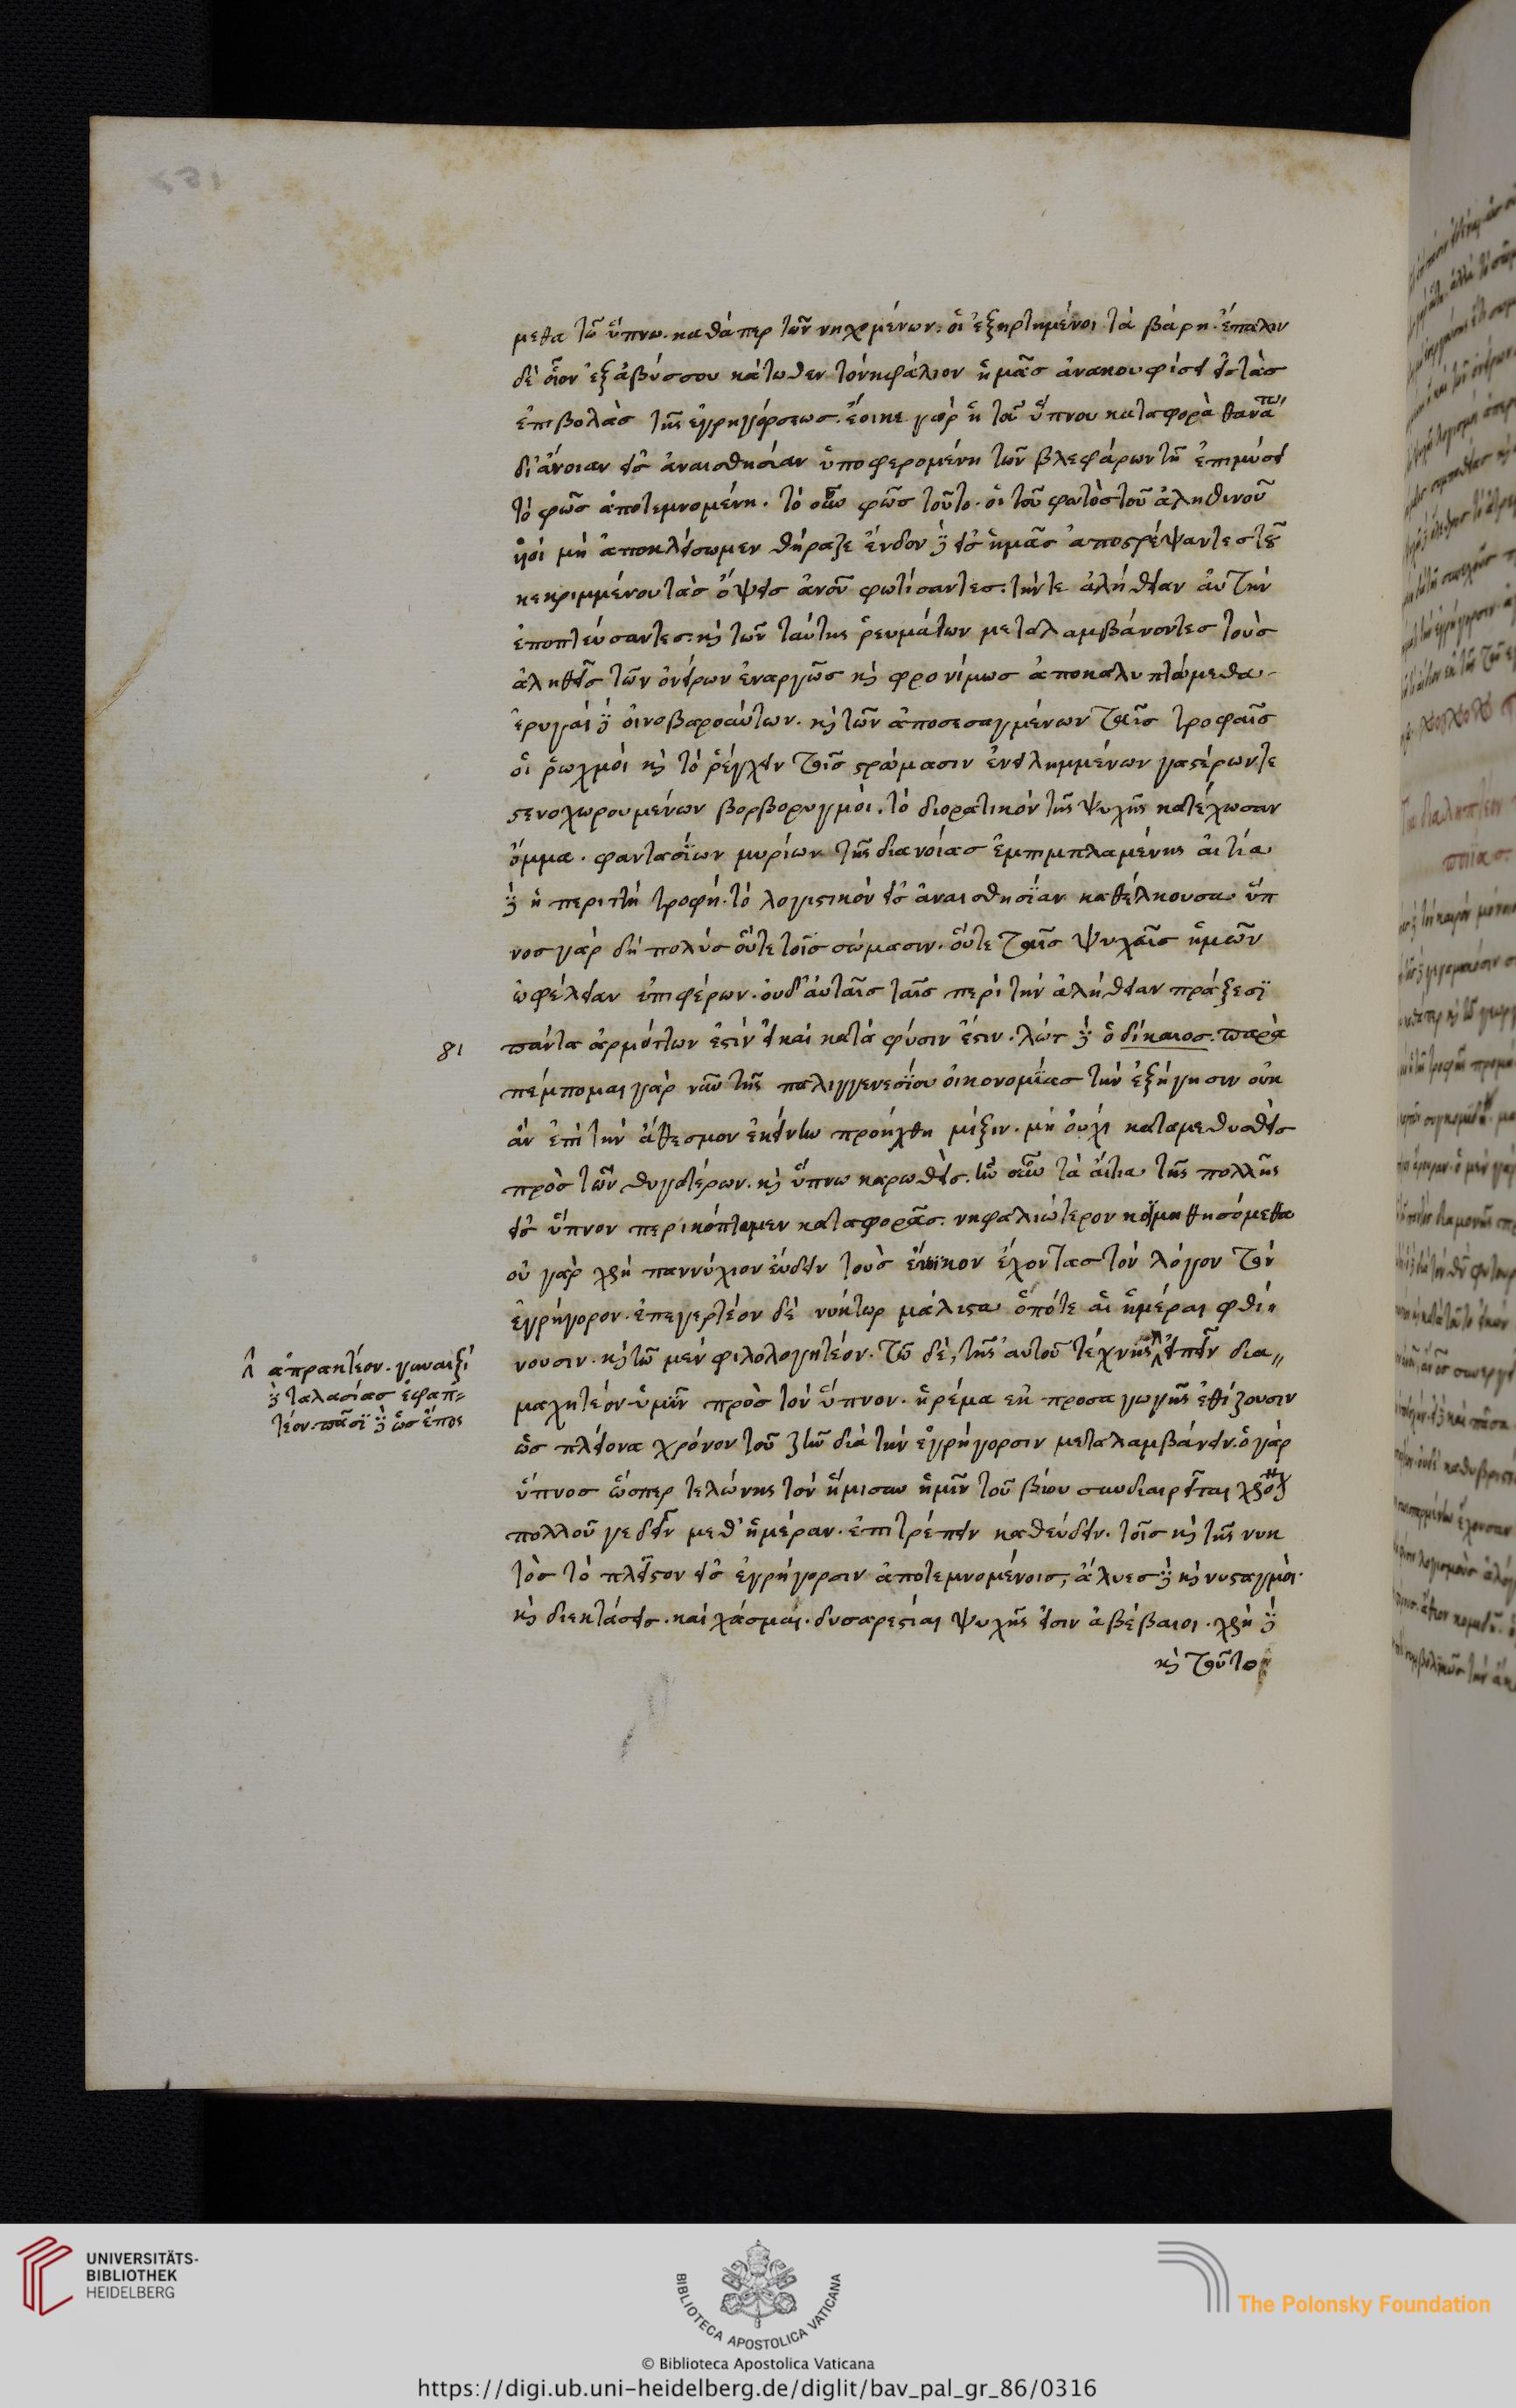 μεθα τῶ ὕπνω. καθάπερ τῶν νηχομένων. οἱ ἐξηρτημένοι τὰ βάρη. ἔπαλιν
δὲ οἷον ἐξ ἀβύσσου κάτωθεν τὸν νηφάλιον ἡμᾶς ἀνακουφίσει εἰς τὰς
ἐπιβολὰς τῆς ἐγρηγόρσεως. ἔοικε γὰρ ἡ τοῦ ὕπνου καταφορὰ θανάτω
δι' ἄνοιαν εἰς ἀναισθησίαν ὑποφερομένη τῶν βλεφάρων τῇ ἐπιμύσει
τὸ φῶς ἀποτεμνομένη. τὸ οὖν φῶς τοῦτο. οἱ τοῦ φωτὸς τοῦ ἀληθινοῦ
υἱοὶ μὴ ἀποκλείσωμεν θύραζε ἔνδον δὲ εἰς ἡμᾶς ἀποστρέψαντες τοῦ
κεκριμμένου τὰς ὄψεις ἀνοῦ φωτίσαντες. τήν τε ἀλήθειαν αὐτὴν
ἐποπτεύσαντες. καὶ τῶν ταύτης ῥευμάτων μεταλαμβάνοντες τοὺς
ἀληθεῖς τῶν ὀνείρων ἐναργῶς καὶ φρονίμως ἀποκαλυπτώμεθα.
ἐρυγαὶ δὲ οἰνοβαρούντων. καὶ τῶν ἀποσεσαγμένων ταῖς τροφαῖς
οἱ ῥωχμοὶ καὶ τὸ ῥέγχειν τοῖς στρώμασιν ἐνειλημμένων γαστέρων τε
στενοχωρουμένων βορβορυγμοὶ. τὸ διορατικὸν τῆς ψυχῆς κατέχωσαν
ὄμμα. φαντασίων μυρίων τῆς διανοίας ἐμπιμπλαμένης αἰτία
δὲ ἡ περιττὴ τροφή. τὸ λογιστικὸν εἰς ἀναισθησίαν καθέλκουσα ὕπ
νος γὰρ δὴ πολὺς οὔτε τοῖς σώμασιν. οὔτε ταῖς ψυχαῖς ἡμῶν
ὠφέλειαν ἐπιφέρων. οὐδ' αὐταῖς ταῖς περὶ τὴν ἀλήθειαν πράξεσι
81 πάντα ἁρμόττων ἐστὶν εἰ καὶ κατὰ φύσιν ἐστιν. λὼτ δὲ ὁ δίκαιος. παρα
πέμπομαι γὰρ νῦν τῆς παλιγγενεσίου οἰκονομίας τὴν ἐξήγησιν οὐκ
ἂν ἐπὶ τὴν ἄθεσμον ἐκείνην προήχθη μίξιν. μὴ οὐχὶ καταμεθυσθεὶς
πρὸς τῶν θυγατέρων. καὶ ὕπνω καρωθείς. ἢν οὖν τὰ αἴτια τῆς πολλῆς
εἰς ὕπνον περικόπτωμεν καταφορᾶς. νηφαλιώτερον κοιμηθησόμεθα
οὐ γὰρ χρὴ παννύχιον εὕδειν τοὺς ἔνοικον ἔχοντας τὸν λόγον τὸν
ἐγρήγορον. ἐπεγερτέον δὲ νύκτωρ μάλιστα ὁπότε αἱ ἡμέραι φθί
νουσιν. καὶ τῶ μὲν φιλολογητέον. τῶ δὲ, τῆς αὐτοῦ τέχνης εἰπεῖν δια
μαχητέον ὑμῖν πρὸς τὸν ὕπνον. ἠρέμα ἐκ προσαγωγῆς ἐθίζουσιν
ὡς πλείονα χρόνον τοῦ ζῆν διὰ τὴν ἐγρήγορσιν μεταλαμβάνειν. ὁ γὰρ
ὕπνος ὥσπερ τελώνης τὸν ἥμισυν ἡμῖν τοῦ βίου συνδιαιρεῖται χρόν
πολλοῦ γε δεῖν μεθ' ἡμέραν. ἐπιτρέπειν καθεύδειν. τοῖς καὶ τῆς νυκ
τὸς τὸ πλεῖστον εἰς ἐγρήγορσιν ἀποτεμνομένοις, ἄλυες δὲ καὶ νυσταγμοὶ.
καὶ διεκτάσεις. καὶ χάσμαι. δυσαρεστίαι ψυχῆς εἰσιν ἀβέβαιοι. χρὴ δὲ
καὶ τοῦτο
ἁπρακτέον. γυναιξὶ
δὲ ταλασίας ἐφαπ
τέον. πᾶσι δὲ ὡς ἔπος
UNIVERSITÄTS-
BIBLIOTHEK
HEIDELBERG
BIBLIOTECA APOSTOLICA VATICANA
© Biblioteca Apostolica Vaticana
The Polonsky Foundation
https://digi.ub.uni-heidelberg.de/diglit/bav_pal_gr_86/0316